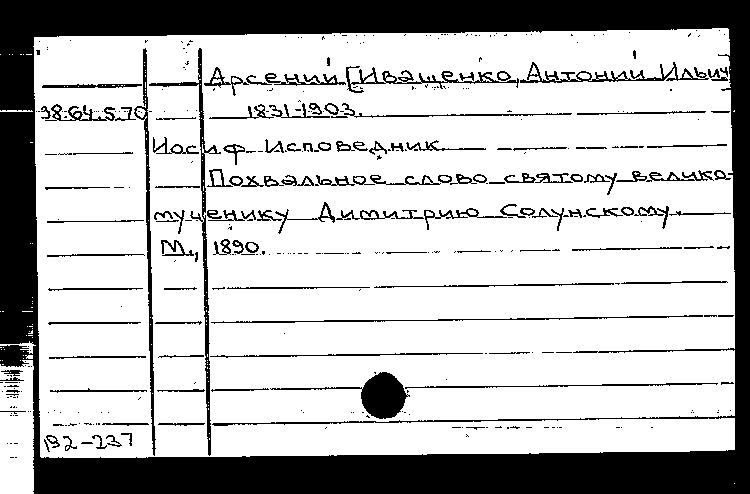 Арсений [Иващенко, Антоний Ильич
38.64.5.70 1831-1903.
Иосиф Исповедник.
Похвальное слово святому велико-
мученику Димитрию Солунскому.
М., 1890.
192-237